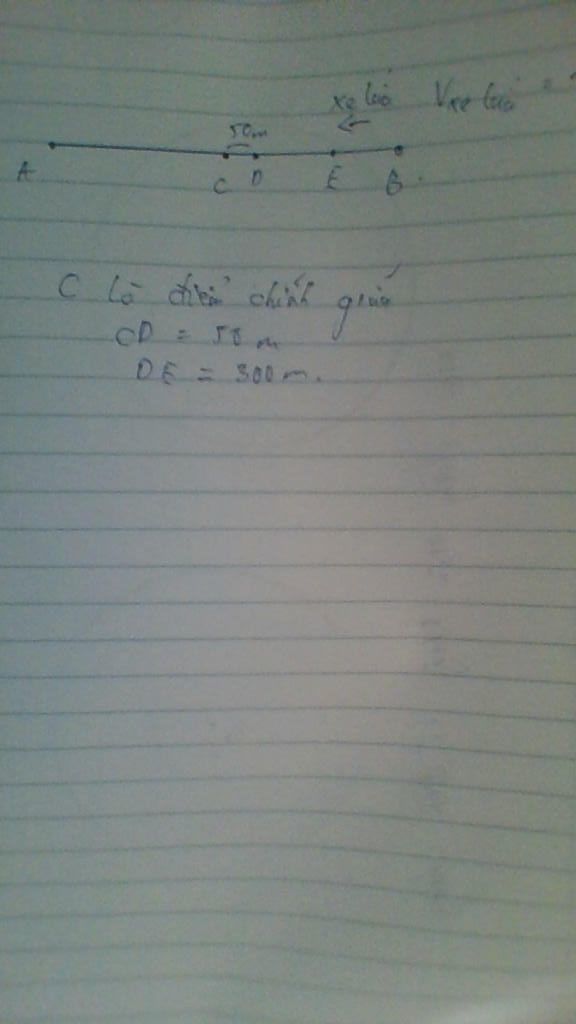 xe lửa V xe lửa =
50m
A C D E B
C là điểm chính giữa
CD = 50 m
DE = 300 m.